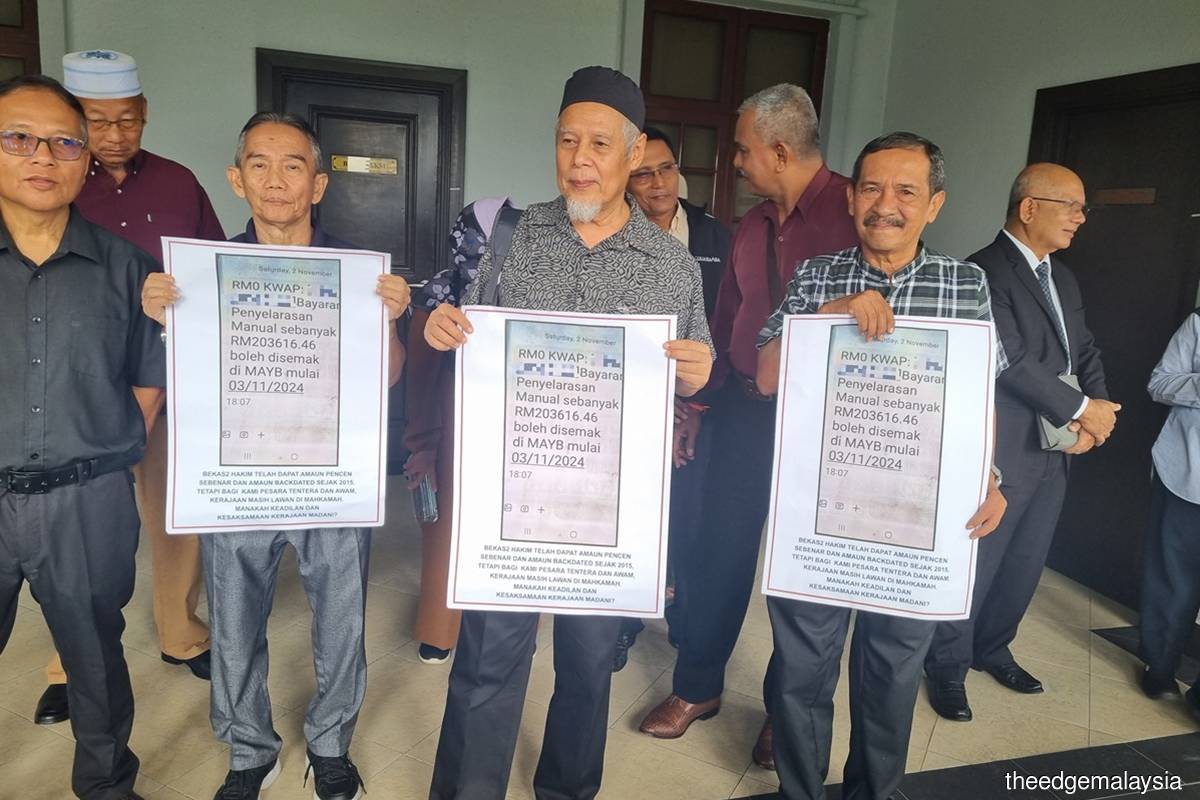 Saturday, 2 November
RM0 KWAP:
Bayaran
Penyelarasan
Manual sebanyak
RM203616.46
boleh disemak
di MAYB mulai
03/11/2024
18:07
BEKAS2 HAKIM TELAH DAPAT AMAUN PENCEN
SEBENAR DAN AMAUN BACKDATED SEJAK 2015,
TETAPI BAGI KAMI PESARA TENTERA DAN AWAM,
KERAJAAN MASIH LAWAN DI MAHKAMAH.
MANAKAH KEADILAN DAN
KESAKSAMAAN KERAJAAN MADANI?
Saturday, 2 November
RM0 KWAP:
Bayaran
Penyelarasan
Manual sebanyak
RM203616.46
boleh disemak
di MAYB mulai
03/11/2024
18:07
BEKAS2 HAKIM TELAH DAPAT AMAUN PENCEN
SEBENAR DAN AMAUN BACKDATED SEJAK 2015,
TETAPI BAGI KAMI PESARA TENTERA DAN AWAM,
KERAJAAN MASIH LAWAN DI MAHKAMAH.
MANAKAH KEADILAN DAN
KESAKSAMAAN KERAJAAN MADANI?
Saturday, 2 November
RM0 KWAP:
Bayaran
Penyelarasan
Manual sebanyak
RM203616.46
boleh disemak
di MAYB mulai
03/11/2024
18:07
BEKAS2 HAKIM TELAH DAPAT AMAUN PENCEN
SEBENAR DAN AMAUN BACKDATED SEJAK 2015,
TETAPI BAGI KAMI PESARA TENTERA DAN AWAM,
KERAJAAN MASIH LAWAN DI MAHKAMAH.
MANAKAH KEADILAN DAN
KESAKSAMAAN KERAJAAN MADANI?
theedgemalaysia